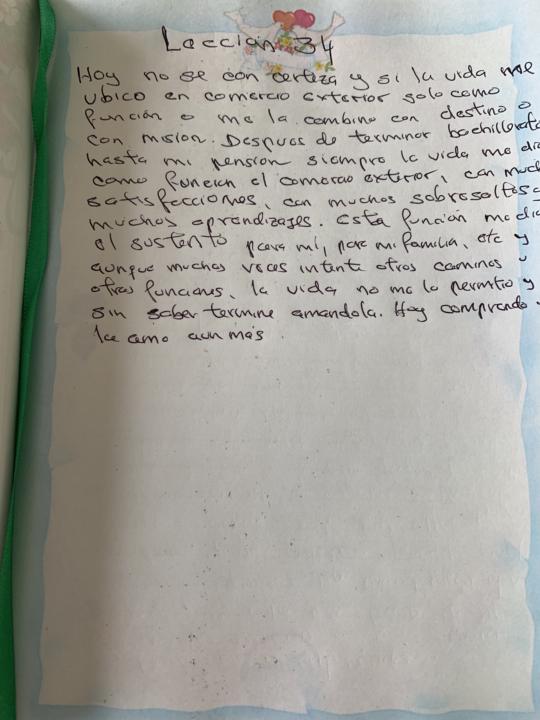 Leccion 34
Hoy no se con certeza y si la vida me
ubico en comercio exterior solo como
función o me la combino con destino o
con mision. Despues de terminar bachillerato
hasta mi pension siempre la vida me dio
como funcion el comercio exterior, con much
satisfacciones, con muchos sobresaltos
muchos aprendizajes. Esta función me dio
el sustento para mí, para mi familia, etc y
aunque muchas veces intente otros caminos y
otras funciones, la vida no me lo permitio y
sin saber termine amandola. Hoy comprendo
la amo aun más.